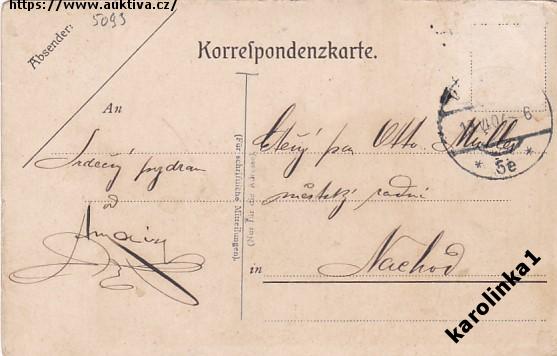 https://www.auktiva.cz/
5093
Absender:
Korrespondenzkarte.
An
Srdečný pozdrav
od
(Für schriftliche Mitteilungen.)
(Nur für die Adresse.)
Ctěný pan Otto Müller
městský radní
in Náchod
6
* 5e *
karolinka1